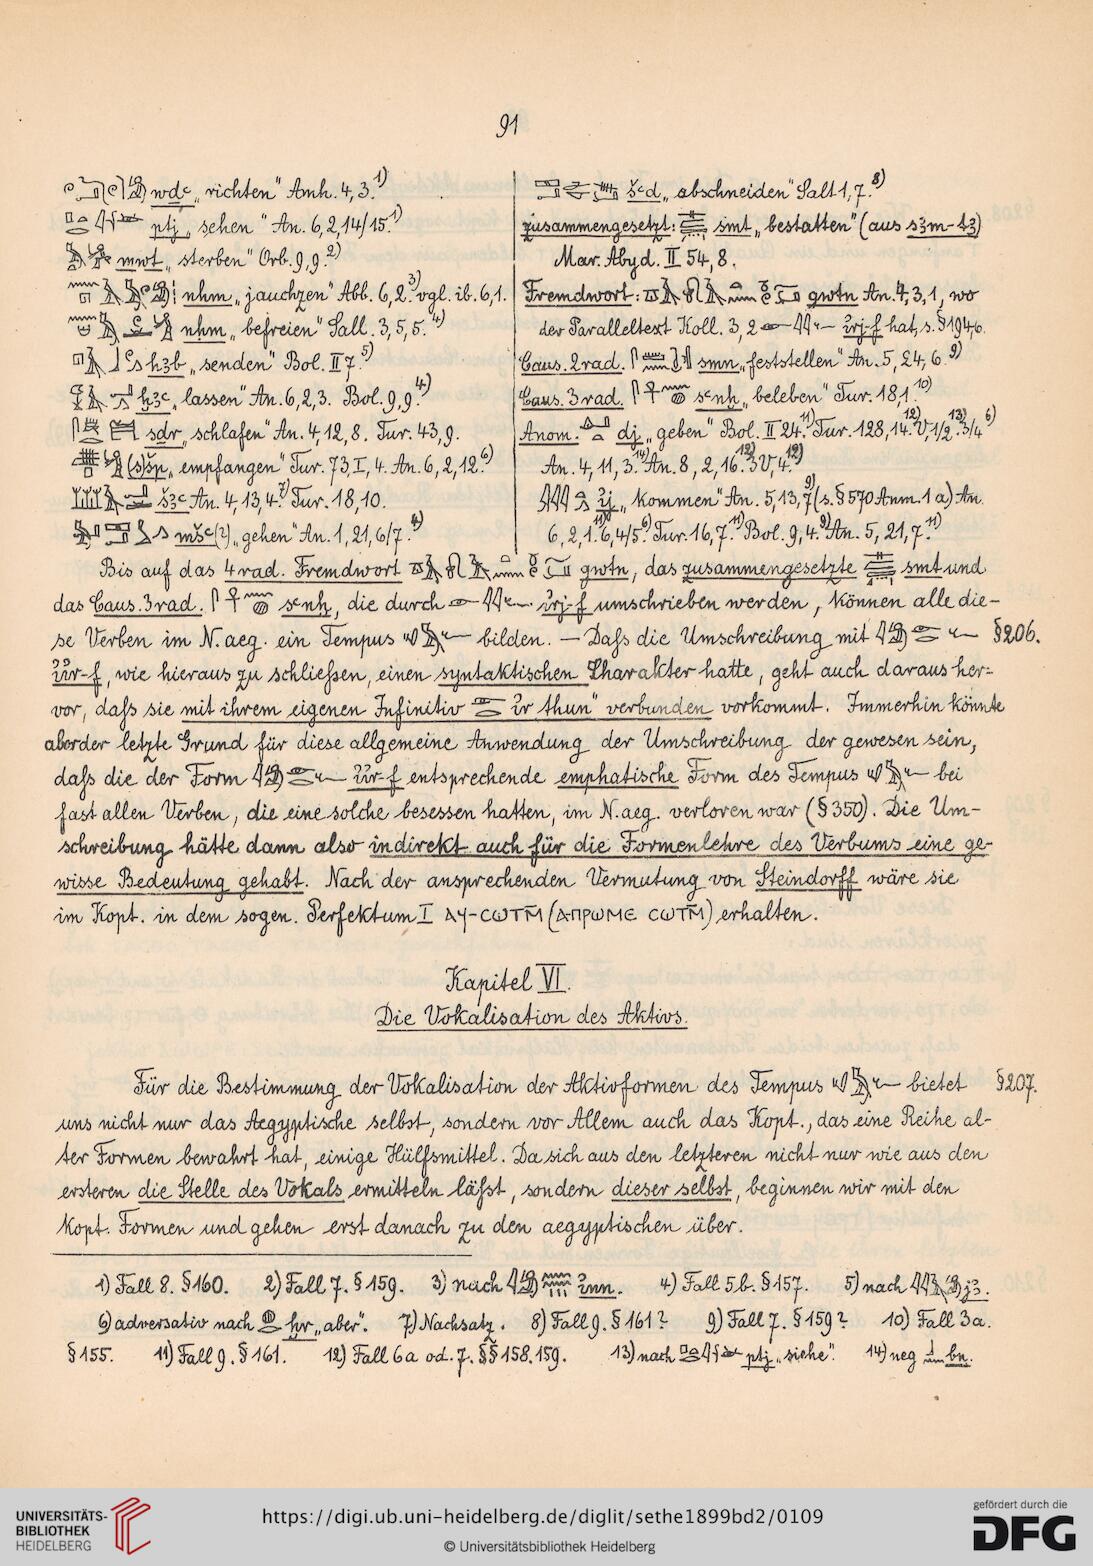 91
wdꜥ „richten“ Amh. 4, 3.1)
ptj „sehen“ An. 6, 2, 14/15.1)
mwt „sterben“ Orb. 9, 9.2)
nhm „jauchzen“ Abb. 6, 2.3) vgl. ib. 6, 1.
nḥm „befreien“ Sall. 3, 5, 5.4)
hꜣb „senden“ Bol. II 7.5)
ḫꜣꜥ „lassen“ An. 6, 2, 3. Bol. 9, 9.4)
sdr „schlafen“ An. 4, 12, 8. Tur. 43, 9.
(s)šp „empfangen“ Tur. 73 I, 4. An. 6, 2, 12.6)
šꜣꜥ An. 4, 13, 4.7) Tur. 18, 10.
mšꜥ(?) „gehen“ An. 1, 21, 6/7.4)
šꜥd „abschneiden“ Salt 1, 7.8)
zusammengesetzt: smt „bestatten“ (aus sꜣm-tꜣ)
Mar. Abyd. II 54, 8.
Fremdwort: gwtn An. 4, 3, 1, wo
der Paralleltext Koll. 3, 2 ı͗rj-f hat, s. § 194b.
Caus. 2rad. smn „feststellen“ An. 5, 24, 6.9)
Caus. 3rad. sꜥnḫ „beleben“ Tur. 18, 1.10)
Anom. dj „geben“ Bol. II 24.11) Tur. 128, 14.12) V, 1/2.13) 3/4 6)
An. 4, 11, 3.14) An. 8, 2, 16.12) 3 V 4.12)
ı͗j „kommen“ An. 5, 13, 7 9) (s. § 570 Anm. 1 a) An.
6, 2, 1.11) 6, 4/5.6) Tur. 16, 7.11) Bol. 9, 4.9) An. 5, 21, 7.11)
Bis auf das 4rad. Fremdwort gwtn, das zusammengesetzte smt und
das Caus. 3rad. sꜥnḫ, die durch ı͗rj-f umschrieben werden, können alle die-
se Verben im N.aeg. ein Tempus bilden. – Daſs die Umschreibung mit § 206.
ı͗ı͗r-f, wie hieraus zu schlieſsen, einen syntaktischen Charakter hatte, geht auch daraus her-
vor, daſs sie mit ihrem eigenen Infinitiv ı͗r thun“ verbunden vorkommt. Immerhin könnte
aber der letzte Grund für diese allgemeine Anwendung der Umschreibung der gewesen sein,
daſs die der Form ı͗ı͗r-f entsprechende emphatische Form des Tempus bei
fast allen Verben, die eine solche besessen hatten, im N.aeg. verloren war (§ 350). Die Um-
schreibung hätte dann also indirekt auch für die Formenlehre des Verbums eine ge-
wisse Bedeutung gehabt. Nach der ansprechenden Vermutung von Steindorff wäre sie
im Kopt. in dem sogen. Perfektum I ⲁϥ-ⲥⲱⲧⲙ̄ (ⲁ-ⲡⲣⲱⲙⲉ ⲥⲱⲧⲙ̄) erhalten.
Kapitel VI.
Die Vokalisation des Aktivs.
Für die Bestimmung der Vokalisation der Aktivformen des Tempus bietet § 207.
uns nicht nur das Aegyptische selbst, sondern vor Allem auch das Kopt., das eine Reihe al-
ter Formen bewahrt hat, einige Hülfsmittel. Da sich aus den letzteren nicht nur wie aus den
ersteren die Stelle des Vokals ermitteln läſst, sondern dieser selbst, beginnen wir mit den
kopt. Formen und gehen erst danach zu den aegyptischen über.
1) Fall 8. § 160. 2) Fall 7. § 159. 3) nach ı͗nn. 4) Fall 5b. § 157. 5) nach jꜣ.
6) adversativ nach ḥr „aber“. 7) Nachsatz. 8) Fall 9. § 161? 9) Fall 7. § 159? 10) Fall 3a.
§ 155. 11) Fall 9. § 161. 12) Fall 6a od. 7. §§ 158. 159. 13) nach ptj „siehe“. 14) neg bn.
UNIVERSITÄTS-
BIBLIOTHEK
HEIDELBERG
https://digi.ub.uni-heidelberg.de/diglit/sethe1899bd2/0109
© Universitätsbibliothek Heidelberg
gefördert durch die
DFG